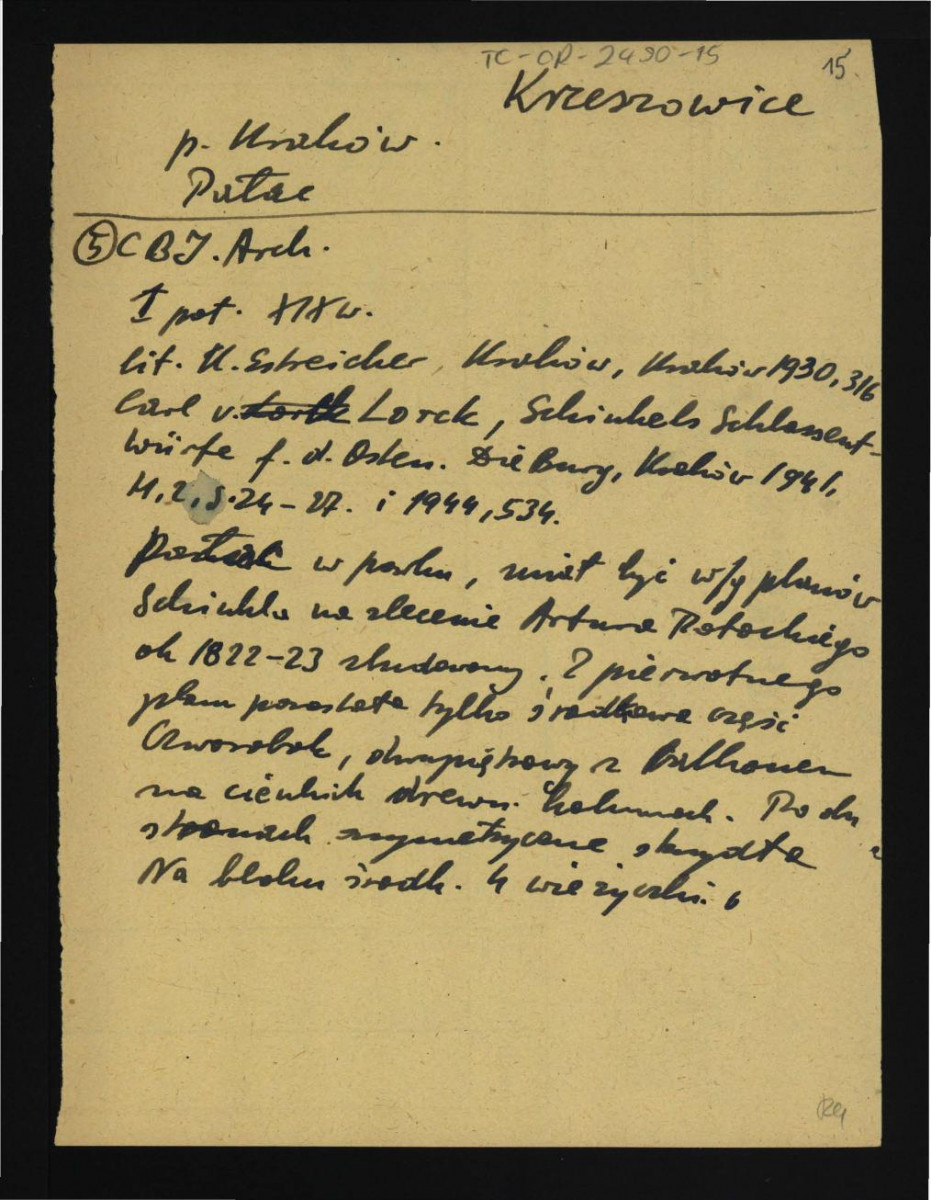 TC-OR-2490-15
15
Krzeszowice
p. Kraków.
Pałac
⑤ C B J. Arch.
I poł. XIX w.
lit. K. Estreicher, Kraków, Kraków 1930, 316
Carl v. Lorck, Schinkels Schlossent-
würfe f. d. Osten. Die Burg, Kraków 1941,
H, 2, S. 24-27. i 1944, 534.
Pałac w parku, miał być w/g planów
Schinkla na zlecenie Artura Potockiego
ok 1822-23 zbudowany. Z pierwotnego
planu pozostała tylko środkowa część
Czworobok, dwupiętrowy z Balkonem
na cienkich drewn. kolumnach. Po dw
stronach symetryczne skrzydła
Na bloku środk. 4 wieżyczki.